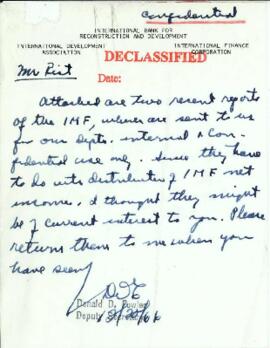 Confidential
INTERNATIONAL BANK FOR
RECONSTRUCTION AND DEVELOPMENT
INTERNATIONAL DEVELOPMENT INTERNATIONAL FINANCE
ASSOCIATION CORPORATION
DECLASSIFIED
Date:
Mr Rist
Attached are two recent reports
of the IMF, which are sent to us
for our Depts. internal & con-
fidential use only. Since they have
to do with distribution of IMF net
income, I thought they might
be of current interest to you. Please
return them to me when you
have seen
Donald D.
Deputy Secretary